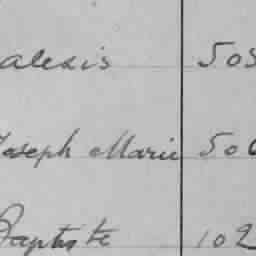 alexis 505
Joseph Marie 506
Baptiste 102